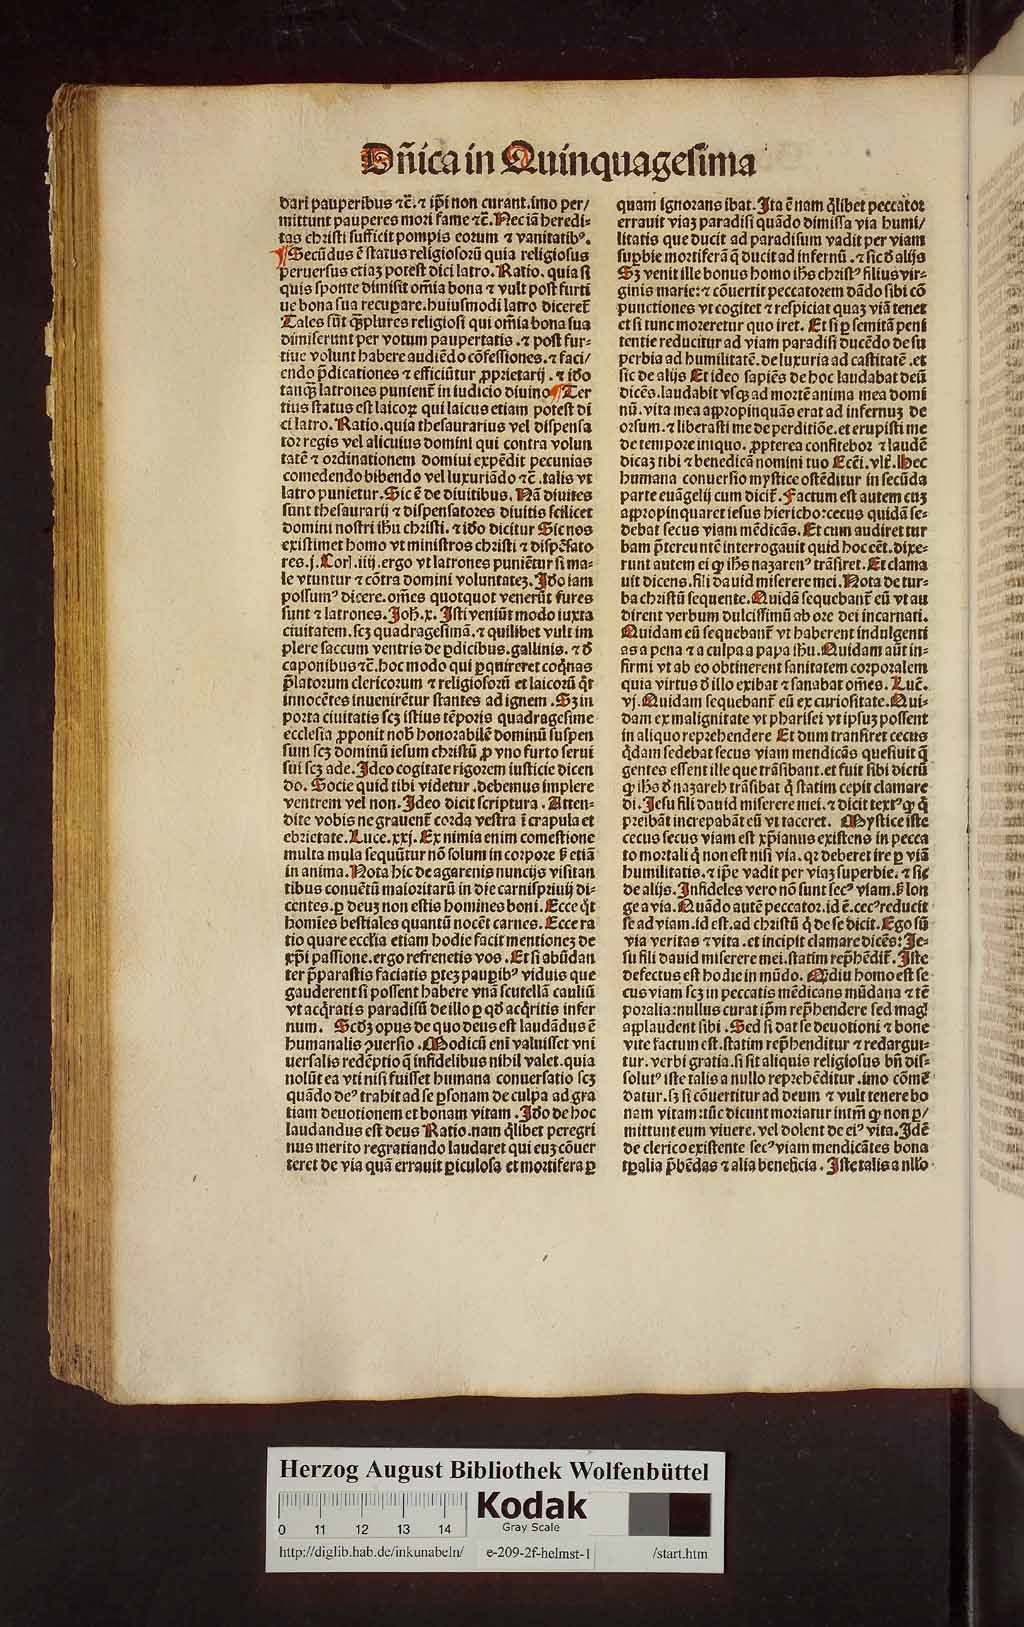 Dñica in Quinquagesima
dari pauperibus ⁊c̄. ⁊ ip̄i non curant. imo per/
mittunt pauperes mori fame ⁊c̄. Nec iā heredi-
tas christi sufficit pompis eorum ⁊ vanitatibꝰ.
¶ Secūdus ē status religiosorū quia religiosus
peruersus etiaꝫ potest dici latro. Ratio. quia si
quis sponte dimisit om̄ia bona ⁊ vult post furti
ue bona sua recuꝑare. huiusmodi latro diceret̄
Tales sūt qꝫplures religiosi qui om̄ia bona sua
dimiserunt per votum paupertatis. ⁊ post fur-
tiue volunt habere audiēdo cōfessiones. ⁊ faci/
endo p̄dicationes ⁊ efficiūtur ꝓprietarij. ⁊ iđo
tanqꝫ latrones punient̄ in iudicio diuino ¶ Ter
tius status est laicoꝝ qui laicus etiam potest di
ci latro. Ratio. quia thesaurarius vel dispensa
tor regis vel alicuius domini qui contra volun
tatē ⁊ ordinationem domiui expēdit pecunias
comedendo bibendo vel luxuriādo ⁊c̄. talis vt
latro punietur. Sic ē de diuitibus. Nā diuites
sunt thesaurarij ⁊ dispensatores diuitis scilicet
domini nostri ihu christi. ⁊ iđo dicitur Sic nos
existimet homo vt ministros christi ⁊ dispēsato
res. j. Cor. iiij. ergo vt latrones puniētur si ma-
le vtuntur ⁊ cōtra domini voluntateꝫ. Iđo iam
possumꝰ dicere. om̄es quotquot venerūt fures
sunt ⁊ latrones. Joh̄. x. Isti veniūt modo iuxta
ciuitatem. scꝫ quadragesimā. ⁊ quilibet vult im
plere saccum ventris de ꝑdicibus. gallinis. ⁊ đ
caponibus ⁊c̄. hoc modo qui ꝑquireret coq̄nas
p̄latorum clericorum ⁊ religiosorū et laicorū q̄t
innocētes inuenirētur stantes ad ignem. Sꝫ in
porta ciuitatis scꝫ istius tēporis quadragesime
ecclesia ꝓponit nob̄ honorabilē dominū suspen
sum scꝫ dominū iesum christū ꝓ vno furto serui
sui scꝫ ade. Ideo cogitate rigorem iusticie dicen
do. Socie quid tibi videtur. debemus implere
ventrem vel non. Ideo dicit scriptura. Atten-
dite vobis ne grauent̄ corda vestra ī crapula et
ebrietate. Luce. xxj. Ex nimia enim comestione
multa mula sequūtur nō solum in corpore sꝫ etiā
in anima. Nota hic de agarenis nuncijs visitan
tibus conuētū maiozitarū in die carnispriuij di-
centes. ꝑ deuꝫ non estis homines boni. Ecce q̄t
homies bestiales quantū nocēt carnes. Ecce ra
tio quare eccl̄ia etiam hodie facit mentioneꝫ de
xp̄i passione. ergo refrenetis vos. Et si abūdan
ter p̄parastis faciatis ꝑteꝫ pauꝑibꝰ viduis que
gauderent si possent habere vnā scutellā cauliū
vt acq̄ratis paradisū de illo ꝑ qđ acq̄ritis infer
num. Scđꝫ opus de quo deus est laudādus ē
humanalis ꝯuersio. Modicū enī valuisset vni
uersalis redēptio q̄ infidelibus nihil valet. quia
nolūt ea vti nisi fuisset humana conuersatio scꝫ
quādo deꝰ trahit ad se ꝑsonam de culpa ad gra
tiam deuotionem et bonam vitam. Iđo de hoc
laudandus est deus Ratio. nam q̄libet peregri
nus merito regratiando laudaret qui euꝫ cōuer
teret de via quā errauit ꝑiculosa et mortifera ꝑ
quam ignorans ibat. Ita ē nam q̄libet peccator
errauit viaꝫ paradisi quādo dimissa via humi/
litatis que ducit ad paradisum vadit per viam
suꝑbie mortiferā q̄ ducit ad infernū. ⁊ sic đ alijs
Sꝫ venit ille bonus homo ihs christꝰ filius vir-
ginis marie: ⁊ cōuertit peccatorem dādo sibi cō
punctiones vt cogitet ⁊ respiciat quaꝫ viā tenet
et si tunc moreretur quo iret. Et si ꝑ semitā peni
tentie reducitur ad viam paradisi ducēdo de su
perbia ad humilitatē. de luxuria ad castitatē. et
sic de alijs Et ideo sapiēs de hoc laudabat deū
dicēs. laudabit vsqꝫ ad mortē anima mea domi
nū. vita mea appropinquās erat ad infernuꝫ de
orsum. ⁊ liberasti me de perditiōe. et erupisti me
de tempore iniquo. ꝓpterea confitebor ⁊ laudē
dicaꝫ tibi ⁊ benedicā nomini tuo Ecc̄i. vlt̄. Hec
humana conuersio mystice ostēditur in secūda
parte euāgelij cum dicit̄. Factum est autem cuꝫ
appropinquaret iesus hiericho: cecus quidā se-
debat secus viam mēdicās. Et cum audiret tur
bam p̄tereuntē interrogauit quid hoc eēt. dixe-
runt autem ei ꝙ ihs nazarenꝰ trāsiret. Et clama
uit dicens. fili dauid miserere mei. Nota de tur-
ba christū sequente. Quidā sequebant̄ eū vt au
dirent verbum dulcissimū ab ore dei incarnati.
Quidam eū sequebant̄ vt haberent indulgenti
as a pena ⁊ a culpa a papa ihu. Quidam aūt in-
firmi vt ab eo obtinerent sanitatem corporalem
quia virtus đ illo exibat ⁊ sanabat om̄es. Luc̄.
vj. Quidam sequebant̄ eū ex curiositate. Qui-
dam ex malignitate vt pharisei vt ipsuꝫ possent
in aliquo reprehendere Et dum transiret cecus
q̄dam sedebat secus viam mendicās quesiuit q̄
gentes essent ille que trāsibant. et fuit sibi dictū
ꝙ ihs đ nazareh trāsibat q̄ statim cepit clamare
di. Iesu fili dauid miserere mei. ⁊ dicit textꝰ ꝙ q̄
preibāt increpabāt eū vt taceret. Mystice iste
cecus secus viam est xp̄ianus existens in pecca
to mortali q̄ non est nisi via. qꝛ deberet ire ꝑ viā
humilitatis. ⁊ ip̄e vadit per viaꝫ superbie. ⁊ sic
de alijs. Infideles vero nō sunt secꝰ viam. sꝫ lon
ge a via. Quādo autē peccator. id ē. cecꝰ reducit
se ad viam. id est. ad christū q̄ de se dicit. Ego sū
via veritas ⁊ vita. et incipit clamare dicēs: Ie-
su fili dauid miserere mei. statim rep̄hēdit̄. Iste
defectus est hodie in mūdo. Qđiu homo est se
cus viam scꝫ in peccatis mēdicans mūdana ⁊ tē
poralia: nullus curat ip̄m rep̄hendere sed magꝭ
applaudent sibi. Sed si dat se deuotioni ⁊ bone
vite factum est. statim rep̄henditur ⁊ redargui-
tur. verbi gratia. si sit aliquis religiosus bn̄ dis-
solutꝰ iste talis a nullo reprehēditur. imo cōmē
datur. sꝫ si cōuertitur ad deum ⁊ vult tenere bo
nam vitam: tūc dicunt moriatur intm̄ ꝙ non ꝑ/
mittunt eum viuere. vel dolent de eiꝰ vita. Idē
de clerico existente secꝰ viam mendicātes bona
tꝑalia p̄bēdas ⁊ alia beneficia. Iste talis a nllo
Herzog August Bibliothek Wolfenbüttel
0 11 12 13 14
Kodak
Gray Scale
http://diglib.hab.de/inkunabeln/ e-209-2f-helmst-1 /start.htm